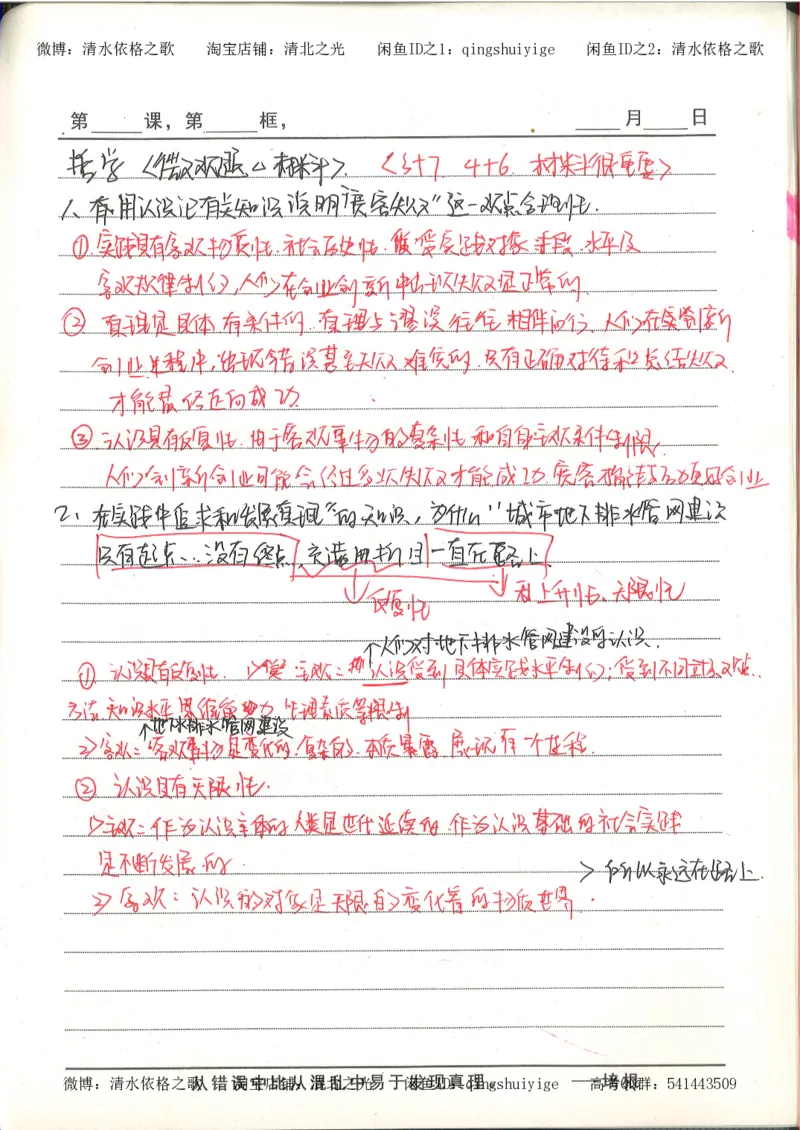 微博：清水依格之歌 淘宝店铺：清北之光 闲鱼ID之1：qingshuiyige 闲鱼ID之2：清水依格之歌
第 课，第 框， 月 日
哲学〈微观题△材料〉. 〈3+7 4+6 材料很重要〉
1、有用认识论有关知识说明"宽容失败"这一观点合理性.
①.实践具有客观物质性.社会历史性. 受实践对象手段.水平及
客观规律制约,人们在创业创新中出现失败是正常的.
② 真理是具体有条件的.真理与谬误往往相伴而行、人们在实践创新
创业过程中,出现错误甚至失败难免的.只有正确对待和总结失败.
才能最终走向成功.
③.认识具有反复性.由于客观事物的复杂性和自身主观条件制限.
人们创新创业可能会经过多次失败才能成功.宽容
2、"在实践中追求和发展真理"的知识，为什么"城市地下排水管网建设
只有起点…没有终点,交通 一直在路上.
反复性
上升性、无限性
↑人们对地下排水管网建设的认识.
① 认识具有反复性. 1>主观:认识受到具体实践水平制约;受到不同立场观点.
方法知识水平思维能力 生理素质等限制
↑地下排水管网建设
2>客观:客观事物是变化的.复杂的.本质暴露展现有一个过程.
② 认识具有无限性.
1>主观:作为认识主体的人类是世代延续的 作为认识基础的社会实践
是不断发展的.
>所以永远在路上.
2>客观:认识的对象是无限的变化着的物质世界.
微博：清水依格之歌 淘宝店铺：清北之光 闲鱼ID之1：qingshuiyige 高考Q群：541443509
从错误中比从混乱中易于发现真理。 ——培根